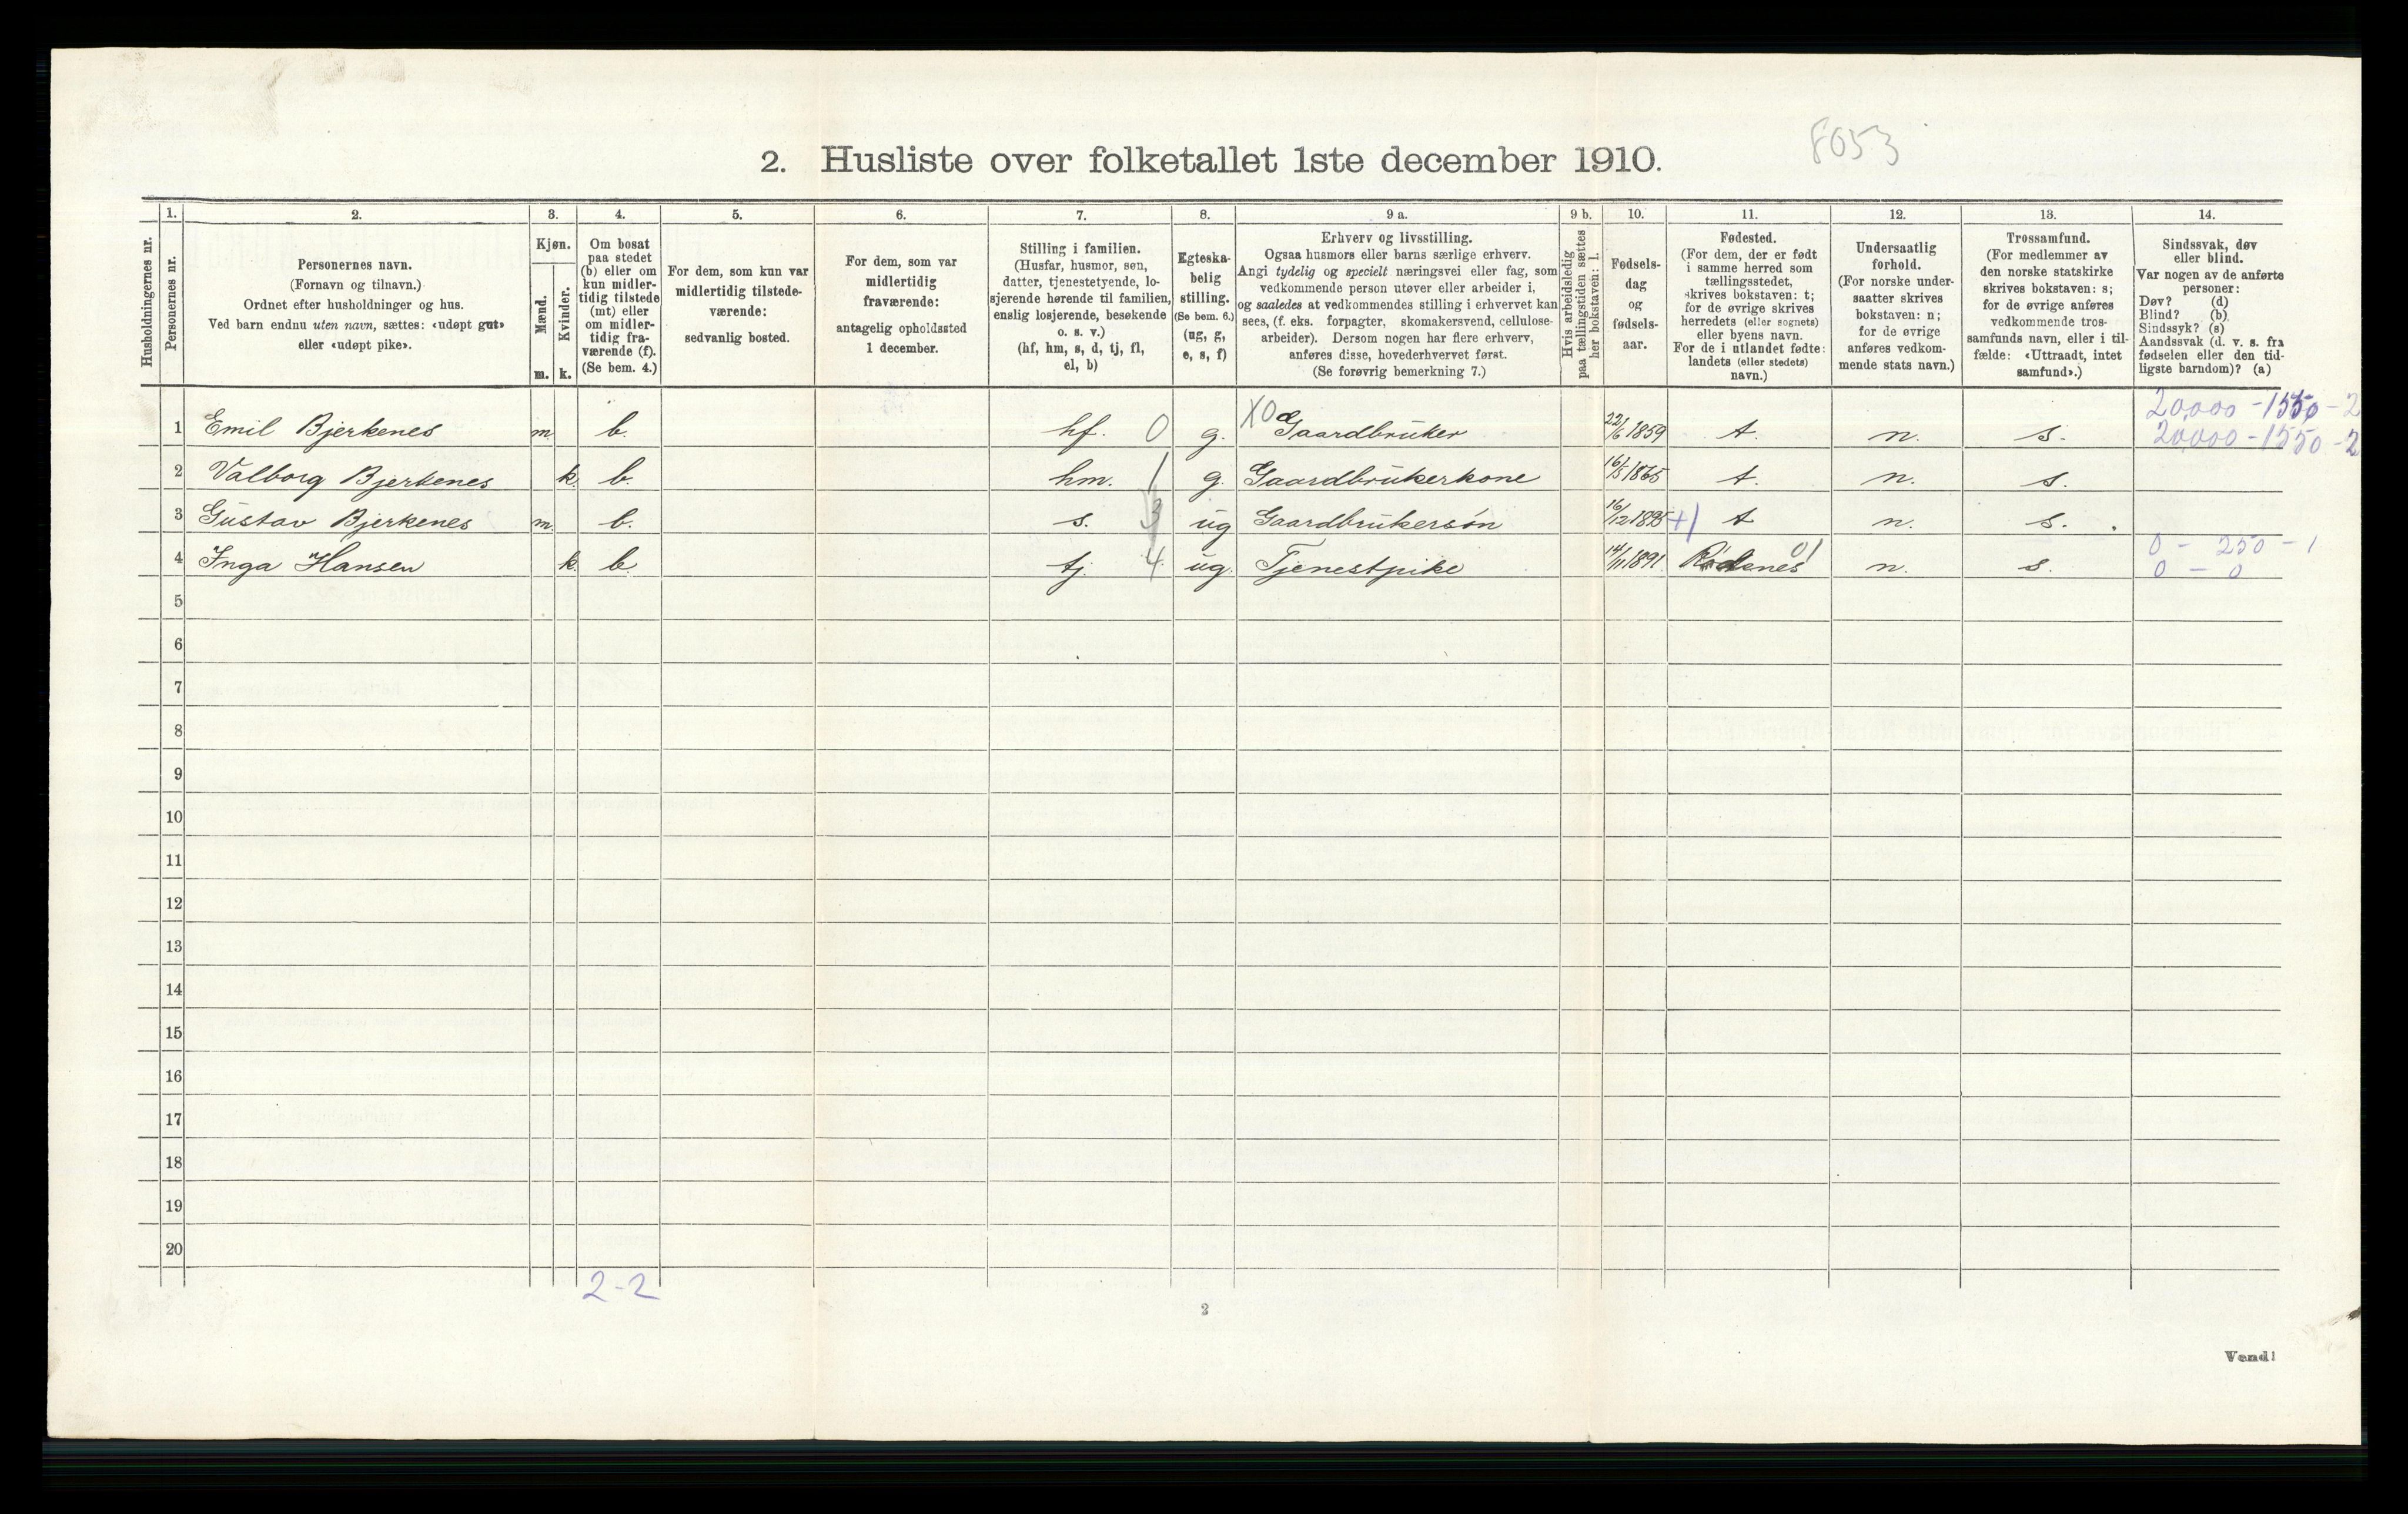 8053
2. Husliste over folketallet 1ste december 1910.
Husholdningernes nr.
1. Personernes nr.
2. Personernes navn.
(Fornavn og tilnavn.)
Ordnet efter husholdninger og hus.
Ved barn endnu uten navn, sættes: «udøpt gut»
eller «udøpt pike».
3. Kjøn.
Mænd. m.
Kvinder. k.
4. Om bosat
paa stedet
(b) eller om
kun midler-
tidig tilstede
(mt) eller
om midler-
tidig fra-
værende (f).
(Se bem. 4.)
5. For dem, som kun var
midlertidig tilstede-
værende:
sedvanlig bosted.
6. For dem, som var
midlertidig
fraværende:
antagelig opholdssted
1 december.
7. Stilling i familien.
(Husfar, husmor, søn,
datter, tjenestetyende, lo-
sjerende hørende til familien,
enslig losjerende, besøkende
o. s. v.)
(hf, hm, s, d, tj, fl,
el, b)
8. Egteska-
belig
stilling.
(Se bem. 6.)
(ug, g,
e, s, f)
9 a. Erhverv og livsstilling.
Ogsaa husmors eller barns særlige erhverv.
Angi tydelig og specielt næringsvei eller fag, som
vedkommende person utøver eller arbeider i,
og saaledes at vedkommendes stilling i erhvervet kan
sees, (f. eks. forpagter, skomakersvend, cellulose-
arbeider). Dersom nogen har flere erhverv,
anføres disse, hovederhvervet først.
(Se forøvrig bemerkning 7.)
9 b. Hvis arbeidsledig
paa tællingstiden sættes
her bokstaven: l.
10. Fødsels-
dag
og
fødsels-
aar.
11. Fødested.
(For dem, der er født
i samme herred som
tællingsstedet,
skrives bokstaven: t;
for de øvrige skrives
herredets (eller sognets)
eller byens navn.
For de i utlandet fødte:
landets (eller stedets)
navn.)
12. Undersaatlig
forhold.
(For norske under-
saatter skrives
bokstaven: n;
for de øvrige
anføres vedkom-
mende stats navn.)
13. Trossamfund.
(For medlemmer av
den norske statskirke
skrives bokstaven: s;
for de øvrige anføres
vedkommende tros-
samfunds navn, eller i til-
fælde: «Uttraadt, intet
samfund».)
14. Sindssvak, døv
eller blind.
Var nogen av de anførte
personer:
Døv? (d)
Blind? (b)
Sindssyk? (s)
Aandssvak (d. v. s. fra
fødselen eller den tid-
ligste barndom)? (a)
20,000 - 1550 - 2
1 Emil Bjerkenes m. b. hf. 0 g. X0 Gaardbruker 22/6 1859 t. n. s. 20,000 - 1550 - 2
2 Valborg Bjerkenes k. b. hm. 1 g. Gaardbrukerkone 16/5 1865 t. n. s.
3 Gustav Bjerkenes m. b. s. 3 ug Gaardbrukersøn 16/12 1895 +1 t n. s.
0 - 250 - 1
4 Inga Hansen k. b. tj. 4 ug. Tjenestpike 14/11 1891 Rødenes 01 n. s. 0 - 0
5
6
7
8
9
10
11
12
13
14
15
16
17
18
19
20
2-2
2
Vend!